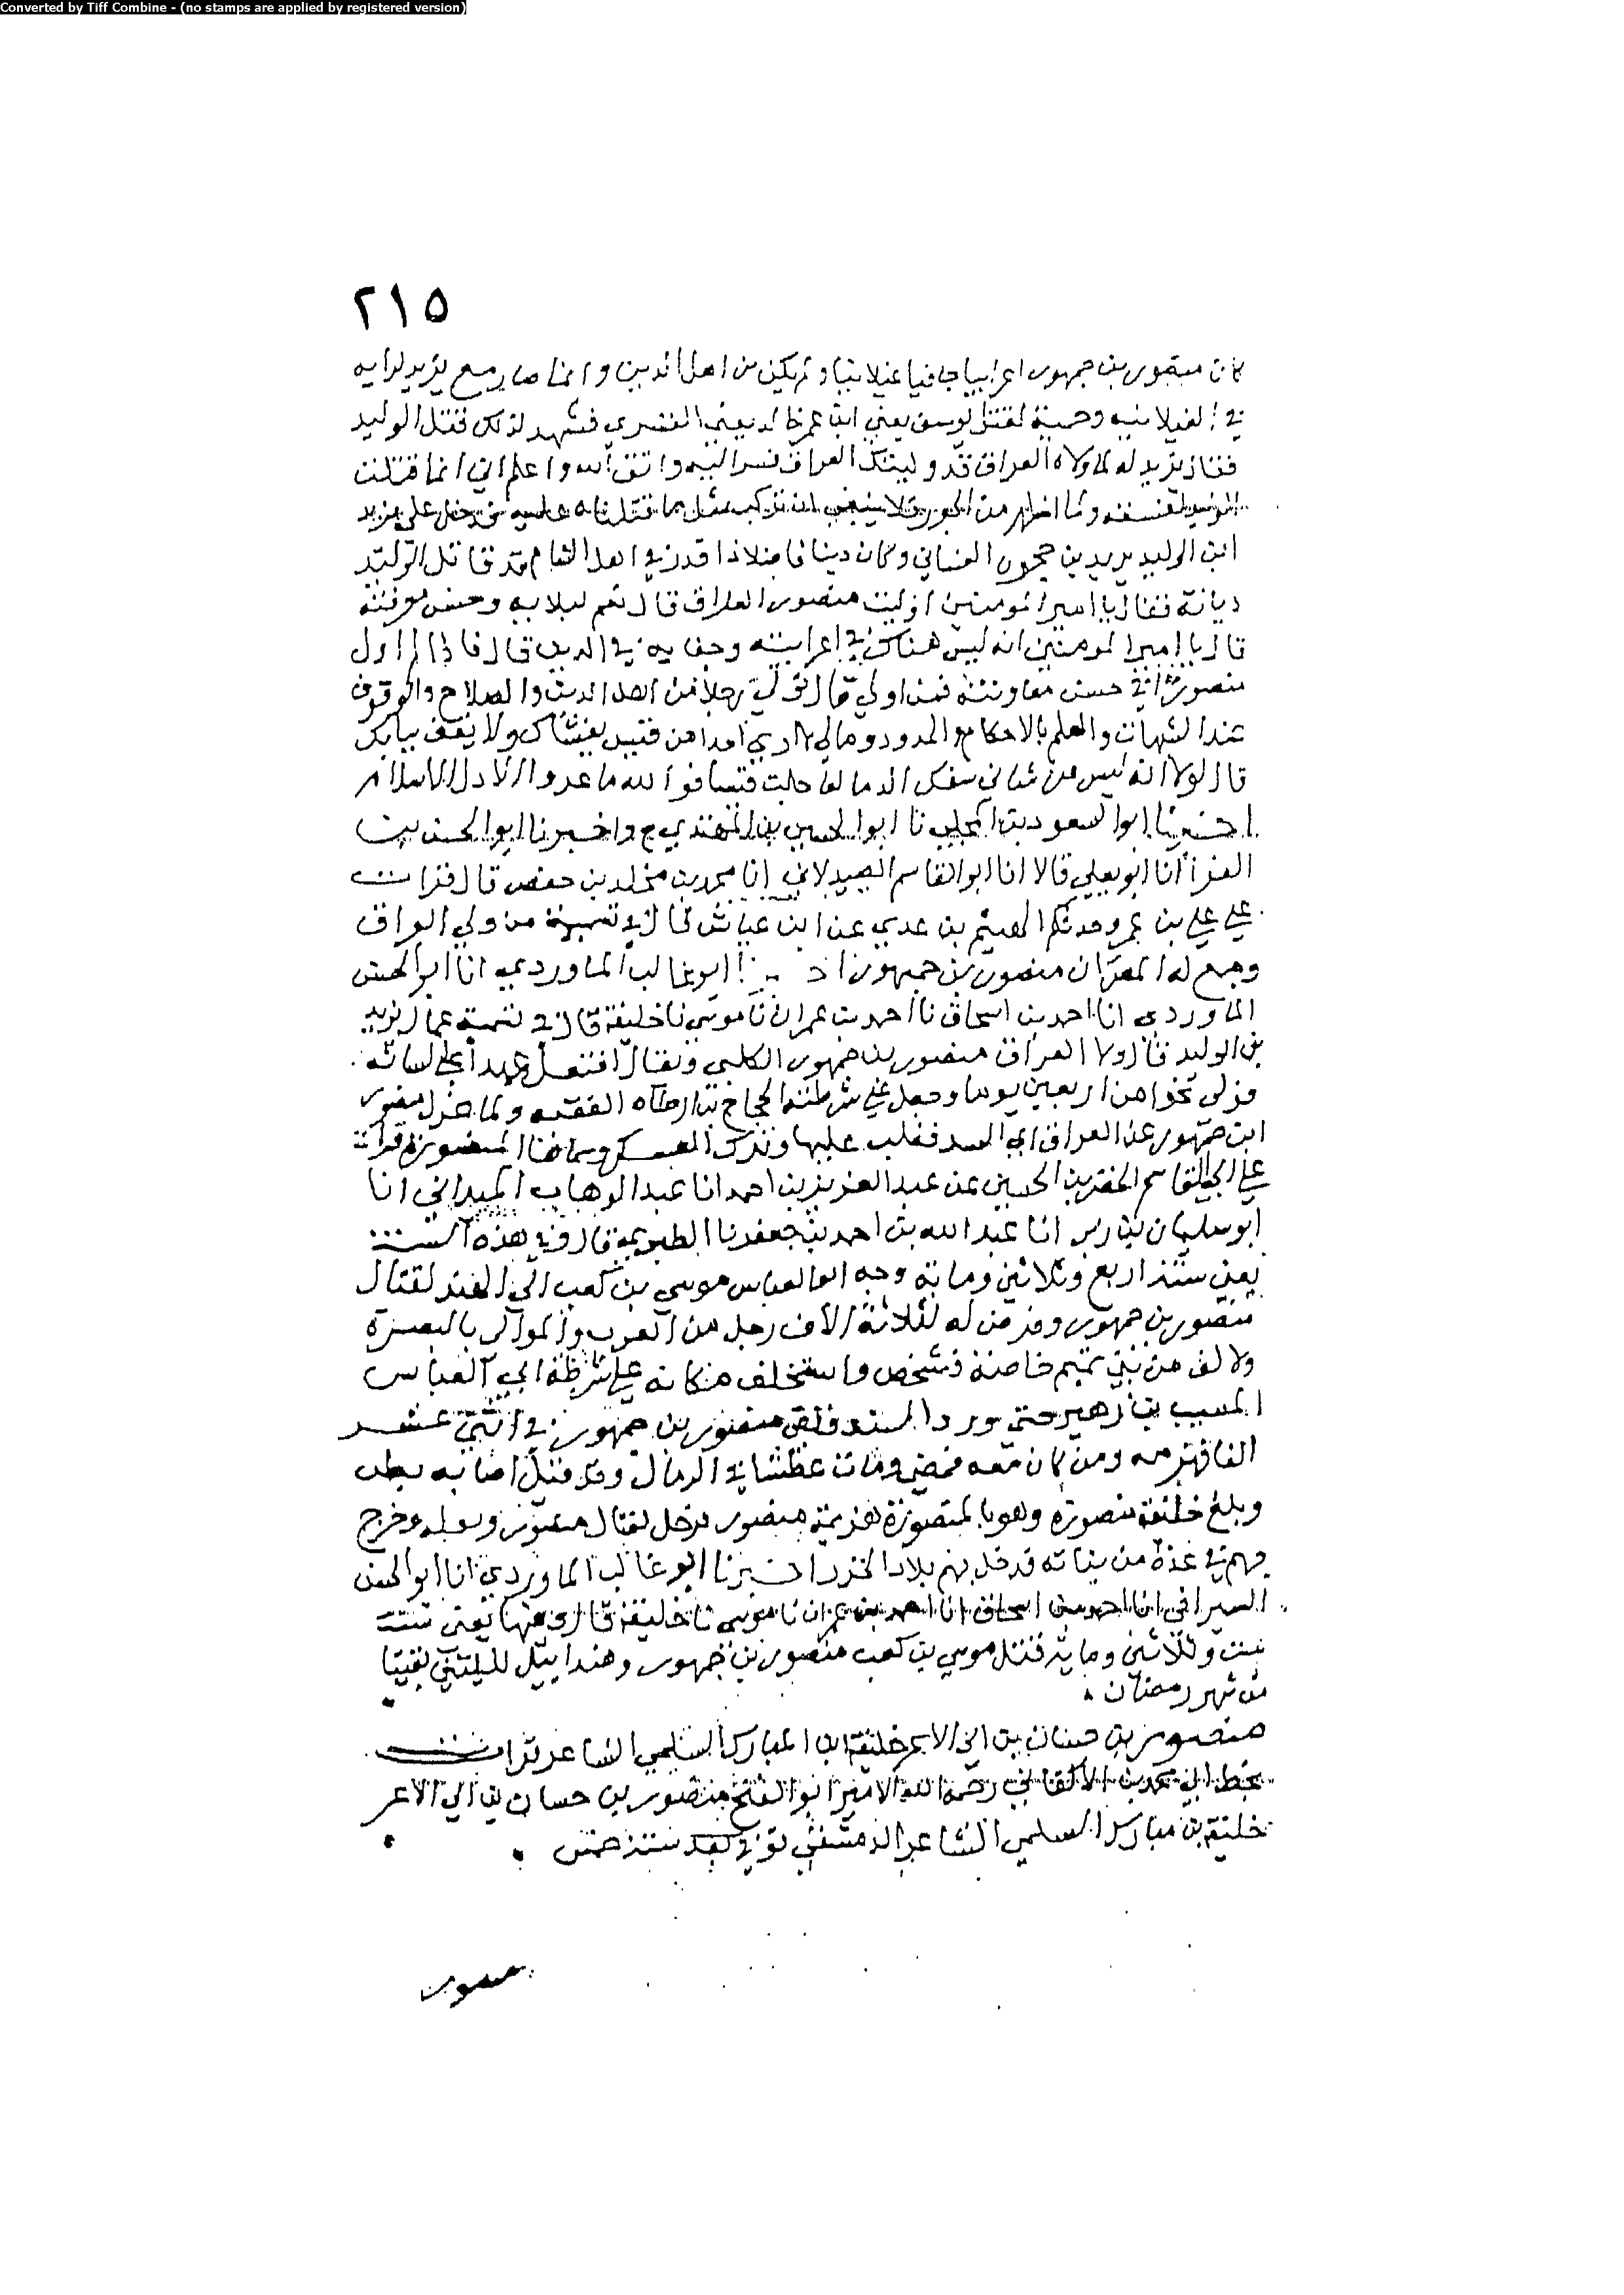 Converted by Tiff Combine - (no stamps are applied by registered version)
٢١٥
كان منصور بن جمهور اعرابيا جافيا غيلانيا ولم يكن من اهل الدين وانما صار مع يزيد لرايه
في الغيلانيه وحمية لقتل يوسف يعني ابن عمر خالد يعني القسري فشهد لذلك قتل الوليد
فقال يزيد له لما ولاه العراق قد وليتك العراق فسر اليه واتق الله واعلم اني انما قتلت
الوليد لفسقه ولما اظهر من الجور فلا ينبغي ان تركب مثل ما قتلناه عليه فدخل على يزيد
ابن الوليد يزيد بن حجرة الغساني وكان دينا فاضلا ذا قدر في اهل الشام قد قاتل الوليد
ديانة فقال يا امير المومنين اوليت منصور العراق قال نعم لبلايه وحسن معونته
قال يا امير المومنين انه ليس هناك في اعرابيته وجفايه في الدين قال فاذا لم اول
منصورا في حسن معاونته فمن اولي قال تولي رجلا من اهل الدين والصلاح والوقوف
عند الشبهات والعلم بالاحكام والحدود ومالي لا اري احدا من قيس يغشاك ولا يقف ببابك
قال لولا انه ليس من شاني سفك الدما لعاجلت قيسا فوالله ما عزوا الا ذل الاسلام
اخبرنا ابو السعود بن المجلي نا ابو الحسين بن المهتدي ح واخبرنا ابو الحسين بن
الفرا انا ابو يعلي قالا انا ابو القاسم الصيدلاني انا محمد بن مخلد بن حفص قال قرات
علي علي بن عمرو حدثكم الهيثم بن عدي عن ابن عياش قال في تسمية من ولي العراق
وجمع له المصران منصور بن جمهور ابو غالب الماوردي انا ابو الحسن
الماوردي انا احمد بن اسحاق نا احمد بن عمران نا موسي نا خليفة قال في تسمية عمال يزيد
بن الوليد قال ولا العراق منصور بن جمهور الكلبي ويقال افتعل عهدا على لسانه
فولي نحوا من اربعين يوما وجعل علي شرطته الحجاج بن ارطاه الفقيه ولما عزل منصور
ابن جمهور عن العراق اتي السند فغلب عليها وترك العسكر وسماها المنصورة قرات
علي ابي القاسم الخضر بن الحسين عن عبد العزيز بن احمد انا عبد الوهاب الميداني انا
ابو سليمان بن زبر انا عبد الله بن احمد بن جعفر نا الطبري قال وفي هذه السنة
يعني سنة اربع وثلاثين وماية وجه ابو العباس موسي بن كعب الي الهند لقتال
منصور بن جمهور وفرض له لثلاثة الاف رجل من العرب والموالي بالبصرة
ولالف من بني تميم خاصة فشخص واستخلف مكانه علي شرطة ابي العباس
المسيب بن زهير حتي ورد السند فلقي منصور بن جمهور في اثني عشر
الفا فهزمه ومن كان معه فمضي ومات عطشا في الرمال وقد قيل اصابه بطن
وبلغ خليفة منصور وهو بالمنصورة هزيمة منصور فرحل بعيال منصور وبثقله وخرج
بهم في عدة من ثقاته فدخل بهم بلاد الخزر اخبرنا ابو غالب الماوردي انا ابو الحسن
السيرافي انا احمد بن اسحاق انا احمد بن عمران نا موسي نا خليفة قال وفيها يعني سنة
ست وثلاثين وماية قتل موسي بن كعب منصور بن جمهور وهنداببيل لليلتين بقيتا
من شهر رمضان
منصور بن حسان بن ابي الاعر خليفة ابن المبارك السلمي الشاعر قرات
بخط ابي محمد بن الاكفاني رحمه الله الامير ابو الفتح منصور بن حسان بن ابي الاعر
خليفة بن مبارك السلمي الشاعر الدمشقي توفي بعد سنة خمس
منصور